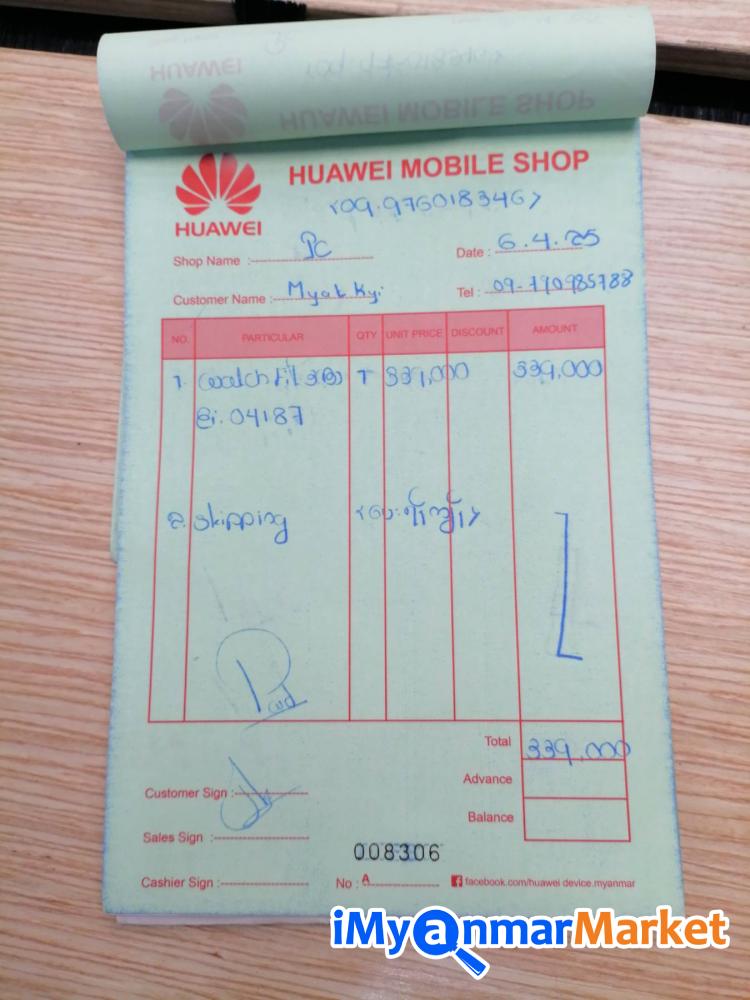 HUAWEI
HUAWEI MOBILE SHOP
HUAWEI MOBILE SHOP
<09.976018346>
HUAWEI
Shop Name : Pc
Date : 6.4.25
Customer Name : Myat Kyi
Tel : 09-790985788
NO. PARTICULAR QTY UNIT PRICE DISCOUNT AMOUNT
1. Watch Fit 3 1 339,000 339,000
04187
2. Skipping
Paid
Total 339,000
Advance
Balance
Customer Sign :
Sales Sign :
008306
Cashier Sign :
No : A
facebook.com/huawei device.myanmar
iMyanmarMarket